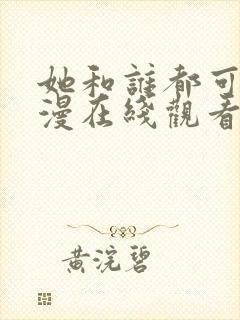 她和誰都可
漫在綫觀看
黃浣碧